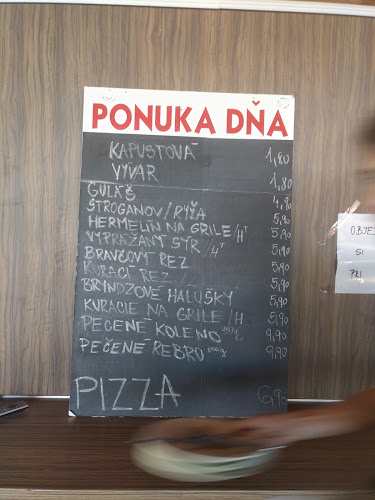 PONUKA DŇA
KAPUSTOVÁ 1,80
VÝVAR 1,80
GULÁŠ 4,90
STROGANOV/RYŽA 5,90
HERMELÍN NA GRILE/HT 5,90
VYPRÁŽANÝ SYR/HT 5,90
BRAVČOVÝ REZ 5,90
KURACÍ REZ 5,90
BRYNDZOVÉ HALUŠKY 5,90
KURACIE NA GRILE/H 5,90
PEČENÉ KOLENO 9,90
PEČENÉ REBRO 9,90
PIZZA 6,90
OBJE
SI
PRI